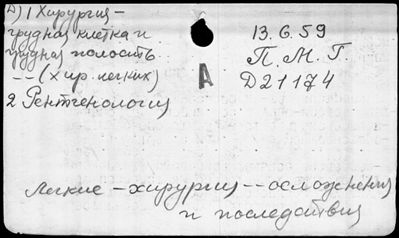 А) 1 Хирургия -
грудная клетка и
грудная полость.
-- (хир. легких)
2 Рентгенология
13.6.59
П. М. Г.
Д21174
А
Легкие - хирургия -- осложнения
и последствия